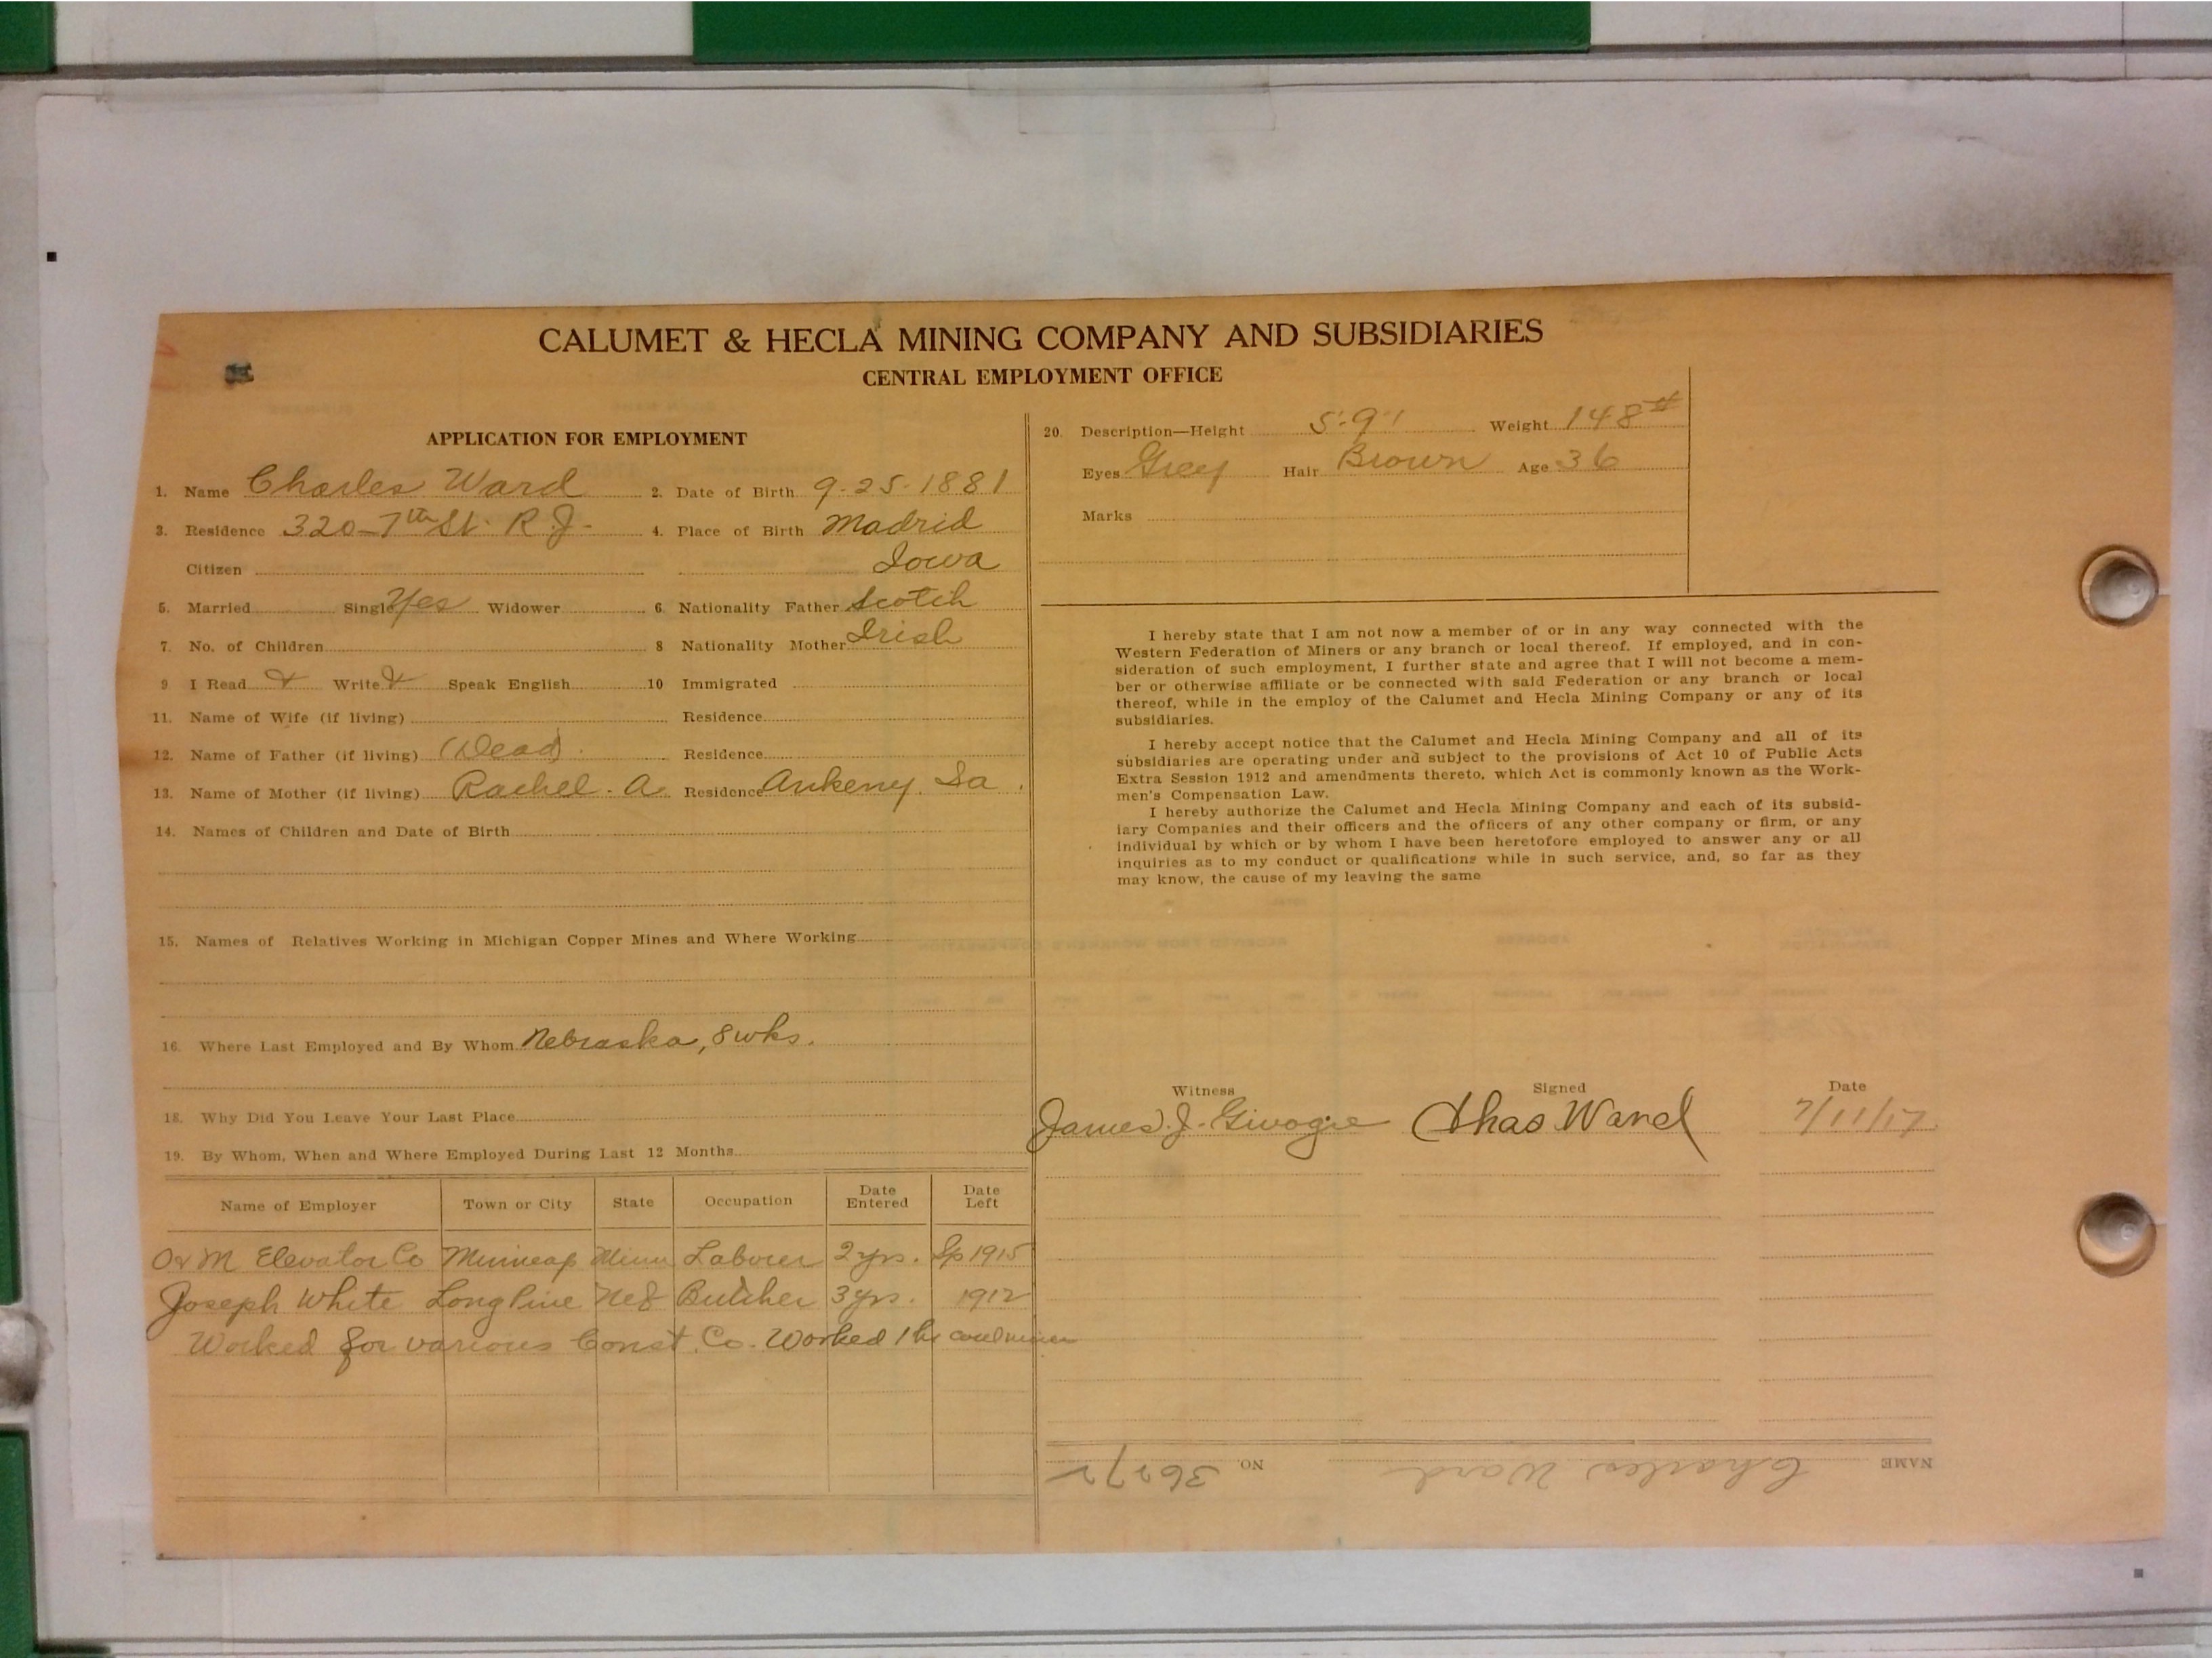 CALUMET & HECLA MINING COMPANY AND SUBSIDIARIES
CENTRAL EMPLOYMENT OFFICE
APPLICATION FOR EMPLOYMENT
1. Name Charles Ward 2. Date of Birth 9-25-1881
3. Residence 320-7th St. R.J. 4. Place of Birth Madrid
Citizen Iowa
5. Married Single Yes Widower 6. Nationality Father Scotch
7. No. of Children 8 Nationality Mother Irish
9 I Read Write Speak English 10 Immigrated
11. Name of Wife (if living) Residence
12. Name of Father (if living) (Dead). Residence
13. Name of Mother (if living) Rachel. A. Residence Ankeny. Ia.
14. Names of Children and Date of Birth
15. Names of Relatives Working in Michigan Copper Mines and Where Working
16. Where Last Employed and By Whom Nebraska, 8 wks.
18. Why Did You Leave Your Last Place
19. By Whom, When and Where Employed During Last 12 Months
Name of Employer Town or City State Occupation Date Entered Date Left
O & M Elevator Co Minneap Minn Laborer 2 yrs. Sp 1915
Joseph White Long Pine Neb Butcher 3 yrs. 1912
Worked for various Const. Co. Worked coal mines
20. Description—Height 5'-9" Weight 148#
Eyes Grey Hair Brown Age 36
Marks
I hereby state that I am not now a member of or in any way connected with the
Western Federation of Miners or any branch or local thereof. If employed, and in con-
sideration of such employment, I further state and agree that I will not become a mem-
ber or otherwise affiliate or be connected with said Federation or any branch or local
thereof, while in the employ of the Calumet and Hecla Mining Company or any of its
subsidiaries.
I hereby accept notice that the Calumet and Hecla Mining Company and all of its
subsidiaries are operating under and subject to the provisions of Act 10 of Public Acts
Extra Session 1912 and amendments thereto, which Act is commonly known as the Work-
men's Compensation Law.
I hereby authorize the Calumet and Hecla Mining Company and each of its subsid-
iary Companies and their officers and the officers of any other company or firm, or any
individual by which or by whom I have been heretofore employed to answer any or all
inquiries as to my conduct or qualifications while in such service, and, so far as they
may know, the cause of my leaving the same
Witness Signed Date
James J. Chas Ward 7/11/17
NAME Charles Ward NO. 36272